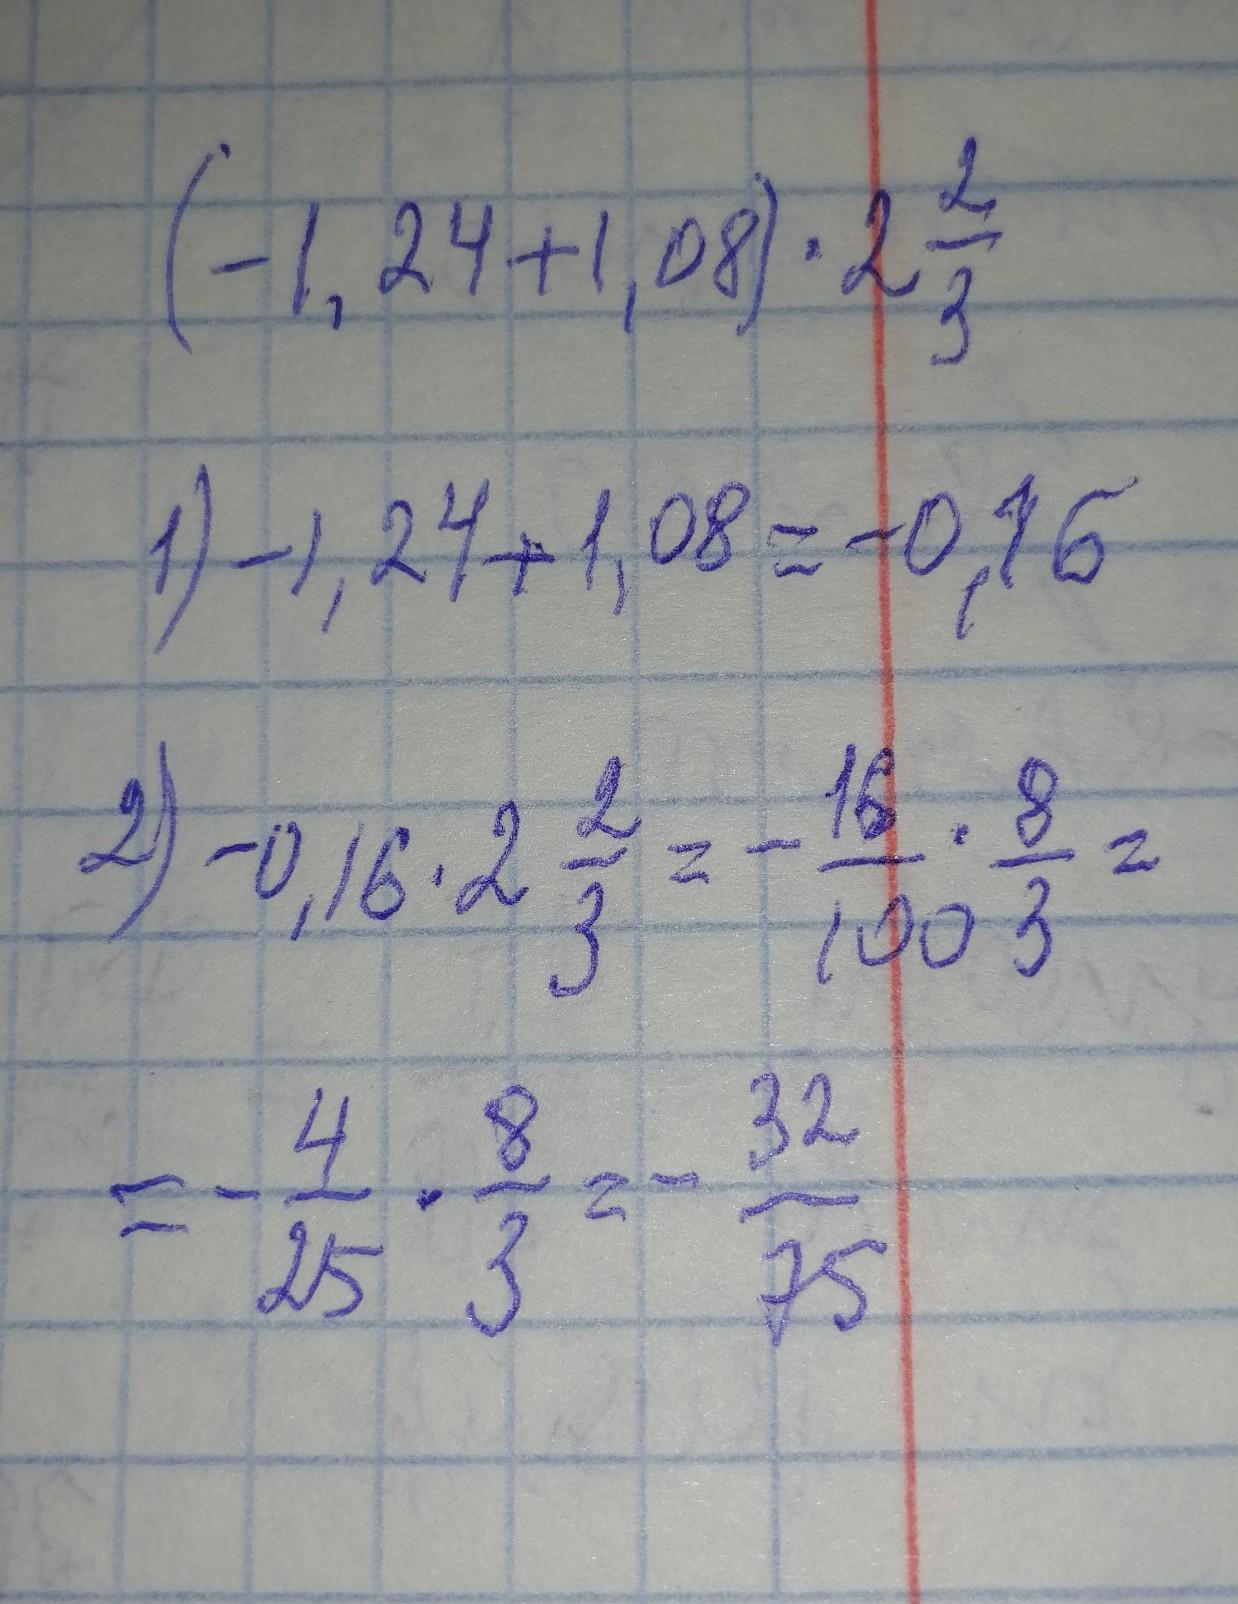 (-1,24+1,08)·2 2/3
1) -1,24+1,08=-0,16
2) -0,16·2 2/3=-16/100·8/3=
=-4/25·8/3=-32/75